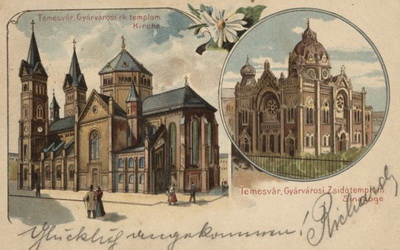 Temesvár, Gyárvárosi rk templom.
Kirche.
Temesvár, Gyárvárosi Zsidótemplom.
Synagoge
Glücklich angekommen!